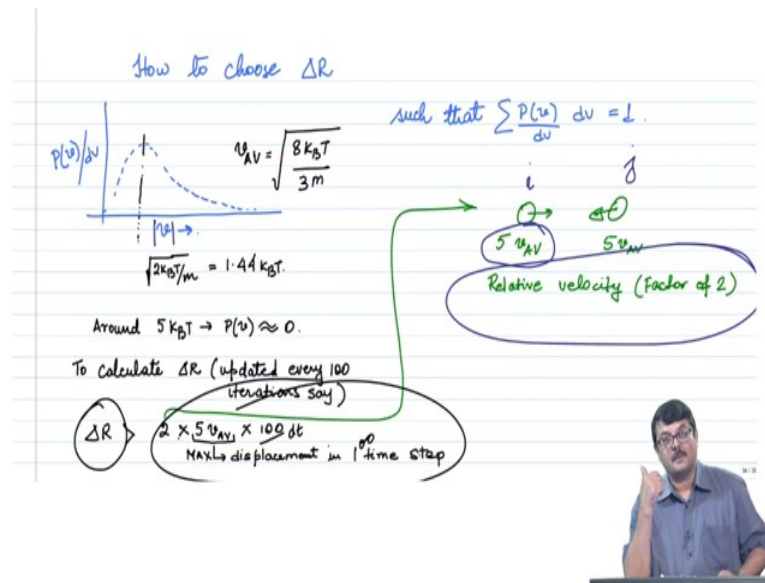 How to choose ΔR
P(v)/dv
v_AV = √(8k_BT / 3m)
|v| →.
√(2k_BT/m) = 1.44 k_BT.
Around 5k_BT → P(v) ≈ 0.
To calculate ΔR (updated every 100
iterations say)
ΔR > 2 × 5 v_AV × 100 dt
MAX↳ displacement in 100 time step
such that Σ P(v)/dv dv = 1.
i j
5 v_AV 5 v_AV
Relative velocity (Factor of 2)